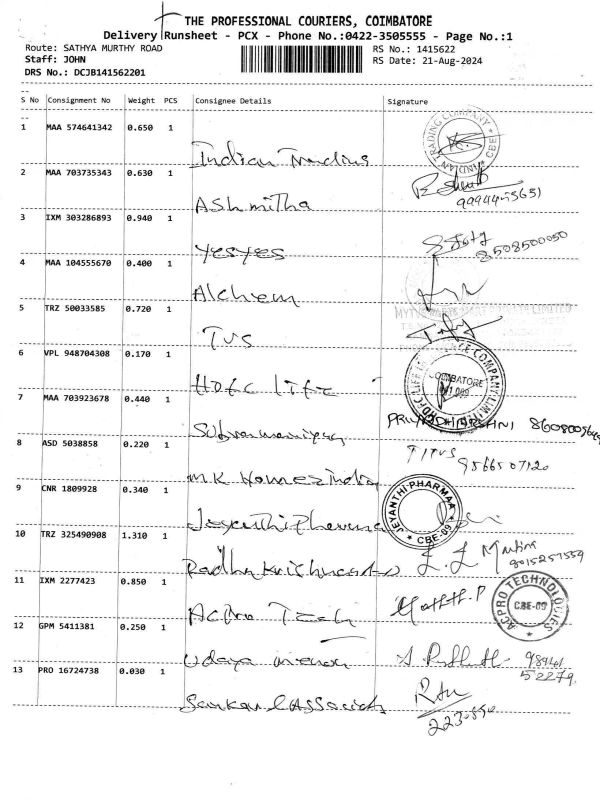 THE PROFESSIONAL COURIERS, COIMBATORE
Delivery Runsheet - PCX - Phone No.:0422-3505555 - Page No.:1
Route: SATHYA MURTHY ROAD
RS No.: 1415622
Staff: JOHN
RS Date: 21-Aug-2024
DRS No.: DCJB141562201
S No Consignment No Weight PCS Consignee Details Signature
1 MAA 574641342 0.650 1
INDIAN TRADING COMPANY * CBE
Indian Trading
2 MAA 703735343 0.630 1
Ashmitha
3 IXM 303286893 0.940 1
yesyes
8508500050
4 MAA 104555670 0.400 1
Alchem
5 TRZ 50033585 0.720 1
TVS
6 VPL 948704308 0.170 1
COIMBATORE
HDFC life
7 MAA 703923678 0.440 1
PRIYADHARSHINI
8 ASD 5038858 0.220 1
TITUS
9566507120
M.K Homes India
9 CNR 1809928 0.340 1
JEYANTHI PHARMAA * CBE-09 *
10 TRZ 325490908 1.310 1
8015257559
11 IXM 2277423 0.850 1
ACPRO TECHNOLOGIES CBE-09 *
Acpro Tech
12 GPM 5411381 0.250 1
Udaya menon
13 PRO 16724738 0.030 1
52279
Sankar & Associats